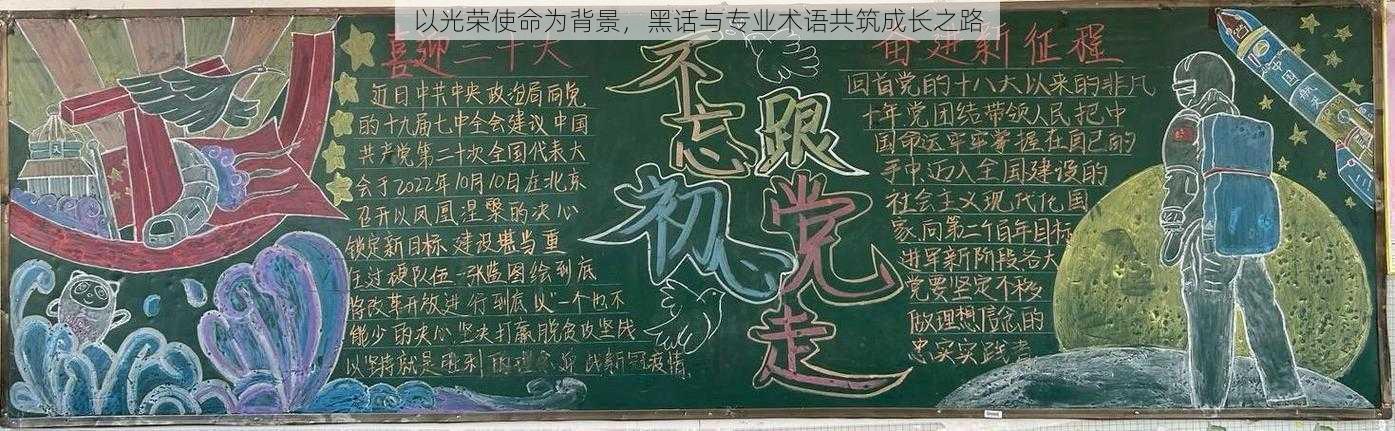 以光荣使命为背景，黑话与专业术语共筑成长之路
喜迎二十大
近日中共中央政治局向党
的十九届七中全会建议中国
共产党第二十次全国代表大
会于2022年10月10日在北京
召开以凤凰涅槃的决心
锁定新目标建设堪当重
任过硬队伍一张蓝图绘到底
将改革开放进行到底以一个也不
能少的决心坚决打赢脱贫攻坚战
以坚持就是胜利的理念迎战新冠疫情
不忘初心
跟党走
奋进新征程
回首党的十八大以来的非凡
十年党团结带领人民把中
国命运牢牢掌握在自己的
手中迈入全国建设的
社会主义现代化国
家向第二个百年目标
进军新阶段各大
党要坚定不移
做理想信念的
忠实实践者
中国航天